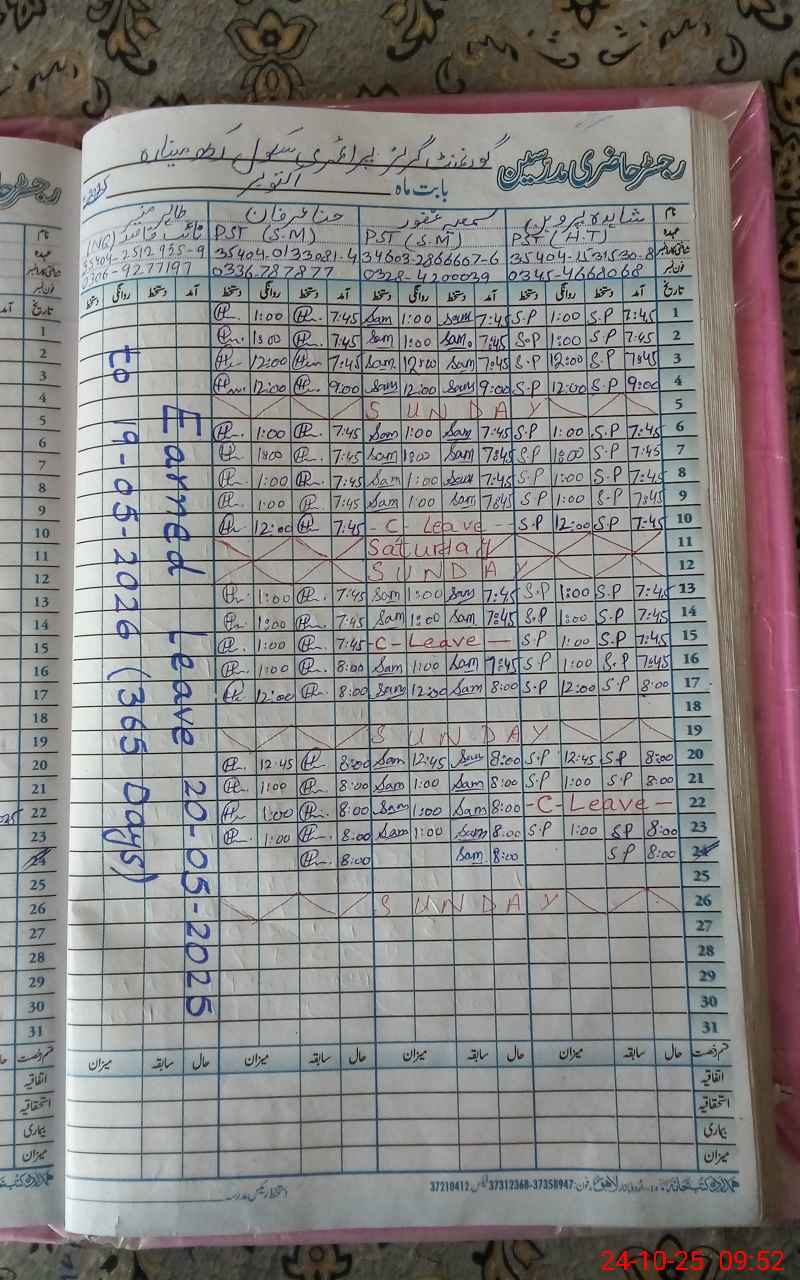 رجسٹر حاضری مدرسین گورنمنٹ گرلز پرائمری سکول
بابت ماہ اکتوبر 2025
نام شاہدہ پروین سمعیہ غفور حنا عرفان
عہدہ PST (H.T) PST (S.M) PST (S.M) نائب قاصد (NQ)
شناختی کارڈ نمبر 35404-1531530-8 34603-2866607-6 35404-0133081-4 35404-2512955-9
فون نمبر 0345-4668068 0328-4200039 0336-787877 0306-9277197
تاریخ آمد دستخط روانگی دستخط آمد دستخط روانگی دستخط آمد دستخط روانگی دستخط آمد دستخط روانگی دستخط
1 7:45 S.P 1:00 S.P 7:45 Sam 1:00 Sam 7:45 1:00
2 7:45 S.P 1:00 S.P 7:45 Sam 1:00 Sam 7:45 1:00
3 7:45 S.P 12:00 S.P 7:45 Sam 12:00 Sam 7:45 12:00
4 9:00 S.P 12:00 S.P 9:00 Sam 12:00 Sam 9:00 12:00
5 SUNDAY
6 7:45 S.P 1:00 S.P 7:45 Sam 1:00 Sam 7:45 1:00
7 7:45 S.P 1:00 S.P 7:45 Sam 1:00 Sam 7:45 1:00
8 7:45 S.P 1:00 S.P 7:45 Sam 1:00 Sam 7:45 1:00
9 7:45 S.P 1:00 S.P 7:45 Sam 1:00 Sam 7:45 1:00
10 7:45 S.P 12:00 S.P - C- Leave - 7:45 12:00
11 Saturday
12 SUNDAY
13 7:45 S.P 1:00 S.P 7:45 Sam 1:00 Sam 7:45 1:00
14 7:45 S.P 1:00 S.P 7:45 Sam 1:00 Sam 7:45 1:00
15 7:45 S.P 1:00 S.P -C- Leave - 7:45 1:00
16 7:45 S.P 1:00 S.P 7:45 Sam 1:00 Sam 8:00 1:00
17 8:00 S.P 12:00 S.P 8:00 Sam 12:00 Sam 8:00 12:00
18
19 SUNDAY
20 8:00 S.P 12:45 S.P 8:00 Sam 12:45 Sam 8:00 12:45
21 8:00 S.P 1:00 S.P 8:00 Sam 1:00 Sam 8:00 1:00
22 -C- Leave - 8:00 Sam 1:00 Sam 8:00 1:00
23 8:00 S.P 1:00 S.P 8:00 Sam 1:00 Sam 8:00 1:00
24 8:00 S.P 8:00 Sam 8:00
25
26 SUNDAY
27
28
29
30
31
Earned Leave 20-05-2025
to 19-05-2026 (365 Days)
قسم رخصت حال سابقہ میزان حال سابقہ میزان حال سابقہ میزان حال سابقہ میزان
اتفاقیہ
استحقاقیہ
بیماری
میزان
37210412 37312368-37358947
رجسٹر حا
نام
عہدہ
شناختی کارڈ نمبر
فون نمبر
تاریخ آمد
1
2
3
4
5
6
7
8
9
10
11
12
13
14
15
16
17
18
19
20
21
22
23
24
25
26
27
28
29
30
31
قسم رخصت
اتفاقیہ
استحقاقیہ
بیماری
میزان
24-10-25 09:52